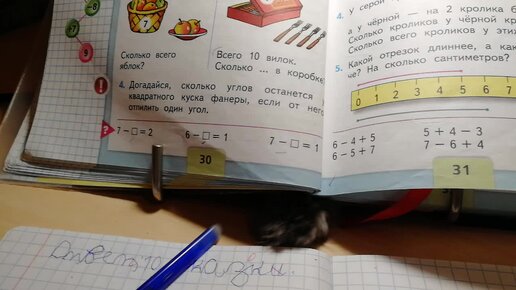 7
+7
+8
+9
Сколько всего
яблок?
Всего 10 вилок.
Сколько ... в коробке
!
4. Догадайся, сколько углов останется у
квадратного куска фанеры, если от него
отпилить один угол.
?
7 − □ = 2 6 − □ = 1 7 − □ = 1
30
4. У серой
а у чёрной — на 2 кролика б
Сколько кроликов у чёрной кр
Сколько всего кроликов у этих
5. Какой отрезок длиннее, а как
че? На сколько сантиметров?
0 1 2 3 4 5 6 7
6 − 4 + 5 5 + 4 − 3
6 − 5 + 7 7 − 6 + 4
31